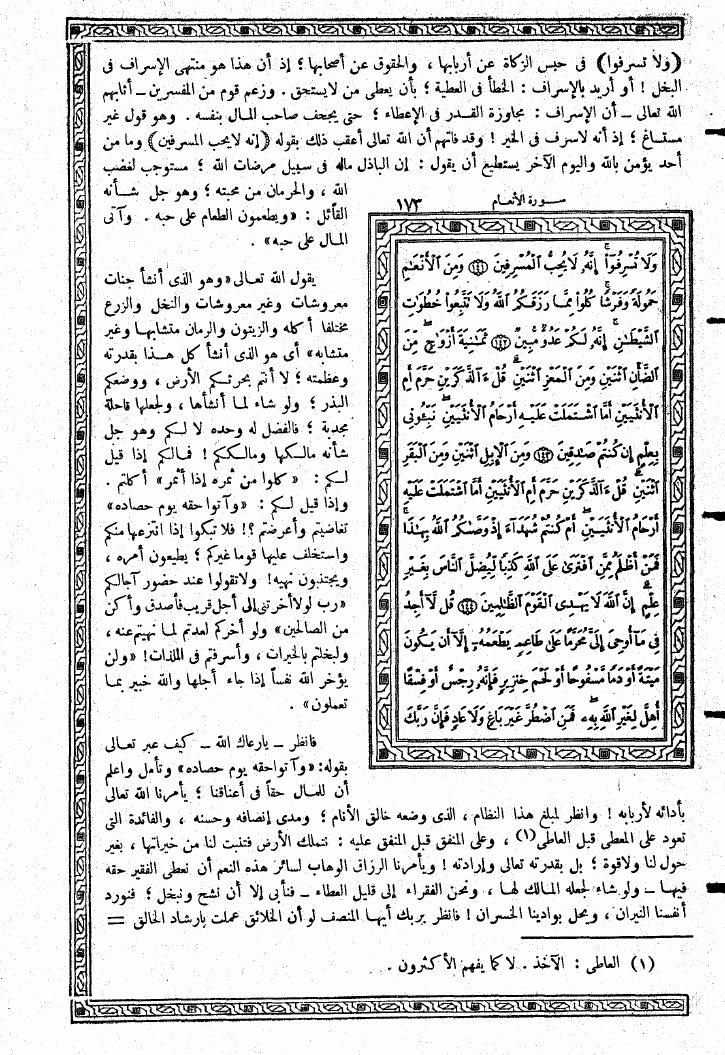 (ولا تسرفوا) فى حبس الزكاة عن أربابها ، والحقوق عن أصحابها ؛ إذ أن هذا هو منتهى الإسراف فى
البخل ! أو أريد بالإسراف : الخطأ فى العطية ؛ بأن يعطى من لايستحق . وزعم قوم من المفسرين ــ أثابهم
الله تعالى ــ أن الإسراف : مجاوزة القدر فى الإعطاء ؛ حتى يجحف صاحب المال بنفسه . وهو قول غير
مستساغ ؛ إذ أنه لاسرف فى الخير ! وقد فاتهم أن الله تعالى أعقب ذلك بقوله (إنه لايحب المسرفين) وما من
أحد يؤمن بالله واليوم الآخر يستطيع أن يقول : إن الباذل ماله فى سبيل مرضات الله ؛ مستوجب لغضب
الله ، والحرمان من محبته ؛ وهو جل شـأنه
القائل : «ويطعمون الطعام على حبه . وآتى
المال على حبه» .
يقول الله تعـالى «وهو الذى أنشأ جنات
معروشات وغير معروشات والنخل والزرع
مختلفا أكله والزيتون والرمان متشابها وغير
متشابه» أى هو الذى أنشأ كل هـذا بقدرته
وعظمته ؛ لا أنتم بحرثـكم الأرض ، ووضعكم
البذر ؛ ولو شاء لمـا أنشأها ، ولجعلها قاحلة
مجدبة ؛ فالفضل له وحده لا لـكم وهو جل
شأنه مالـكها ومالـككم ! فمـالكم إذا قيل
لـكم : «كلوا من ثمره إذا أثمر» أكلتم .
وإذا قيل لـكم : «وآتوا حقه يوم حصاده»
تغاضيتم وأعرضتم ؟! فلا تبكوا إذا انتزعها منكم
واستخلف عليها قوما غيركم ؛ يطيعون أمره ،
ويجتنبون نهيه ! ولاتقولوا عند حضور آجالكم
«رب لولا أخرتنى إلى أجل قريب فأصدق وأكن
من الصالحين» ولو أخركم لعدتم لمـا نهيتم عنه ،
ولبخلتم بالخيرات ، وأسرفتم فى الملذات ! «ولن
يؤخر الله نفساً إذا جاء أجلها والله خبير بمـا
تعملون» .
فانظر ــ يارعاك الله ــ كيف عبر تعـالى
بقوله : «وآتوا حقه يوم حصاده» وتأمل واعلم
أن للمـال حقاً فى أعناقنا ؛ يأمرنا الله تعالى
سـورة الأنعـام ١٧٣
وَلَا تُسْرِفُوٓا۟ إِنَّهُۥ لَا يُحِبُّ ٱلْمُسْرِفِينَ ۝١٤١ وَمِنَ ٱلْأَنْعَـٰمِ
حَمُولَةً وَفَرْشًا كُلُوا۟ مِمَّا رَزَقَكُمُ ٱللَّهُ وَلَا تَتَّبِعُوا۟ خُطُوَٰتِ
ٱلشَّيْطَـٰنِ إِنَّهُۥ لَكُمْ عَدُوٌّ مُّبِينٌ ۝١٤٢ ثَمَـٰنِيَةَ أَزْوَٰجٍ مِّنَ
ٱلضَّأْنِ ٱثْنَيْنِ وَمِنَ ٱلْمَعْزِ ٱثْنَيْنِ قُلْ ءَآلذَّكَرَيْنِ حَرَّمَ أَمِ
ٱلْأُنثَيَيْنِ أَمَّا ٱشْتَمَلَتْ عَلَيْهِ أَرْحَامُ ٱلْأُنثَيَيْنِ نَبِّـُٔونِى
بِعِلْمٍ إِن كُنتُمْ صَـٰدِقِينَ ۝١٤٣ وَمِنَ ٱلْإِبِلِ ٱثْنَيْنِ وَمِنَ ٱلْبَقَرِ
ٱثْنَيْنِ قُلْ ءَآلذَّكَرَيْنِ حَرَّمَ أَمِ ٱلْأُنثَيَيْنِ أَمَّا ٱشْتَمَلَتْ عَلَيْهِ
أَرْحَامُ ٱلْأُنثَيَيْنِ أَمْ كُنتُمْ شُهَدَآءَ إِذْ وَصَّىٰكُمُ ٱللَّهُ بِهَـٰذَا
فَمَنْ أَظْلَمُ مِمَّنِ ٱفْتَرَىٰ عَلَى ٱللَّهِ كَذِبًا لِّيُضِلَّ ٱلنَّاسَ بِغَيْرِ
عِلْمٍ إِنَّ ٱللَّهَ لَا يَهْدِى ٱلْقَوْمَ ٱلظَّـٰلِمِينَ ۝١٤٤ قُل لَّآ أَجِدُ
فِى مَآ أُوحِىَ إِلَىَّ مُحَرَّمًا عَلَىٰ طَاعِمٍ يَطْعَمُهُۥٓ إِلَّآ أَن يَكُونَ
مَيْتَةً أَوْ دَمًا مَّسْفُوحًا أَوْ لَحْمَ خِنزِيرٍ فَإِنَّهُۥ رِجْسٌ أَوْ فِسْقًا
أُهِلَّ لِغَيْرِ ٱللَّهِ بِهِۦ فَمَنِ ٱضْطُرَّ غَيْرَ بَاغٍ وَلَا عَادٍ فَإِنَّ رَبَّكَ
بأدائه لأربابه ! وانظر لمبلغ هذا النظام ، الذى وضعه خالق الأنام ؛ ومدى إنصافه وحسنه ، والفائدة التى
تعود على المعطى قبل العاطى (١) ، وعلى المنفق قبل المنفق عليه : نتملك الأرض فتنبت لنا من خيراتها ، بغير
حول لنا ولاقوة ؛ بل بقدرته تعالى وإرادته ! ويأمرنا الرزاق الوهاب لسائر هذه النعم أن نعطى الفقير حقه
فيهـا ــ ولو شاء لجعله المالك لهـا ، ونحن الفقراء إلى قليل العطاء ــ فنأبى إلا أن نشح ونبخل ؛ فنورد
أنفسنا النيران ، ويحل بوادينا الخسران ! فانظر بربك أيهـا المنصف لو أن الخلائق عملت بإرشاد الخالق =
(١) العاطى : الآخذ . لا كما يفهم الأكثرون .